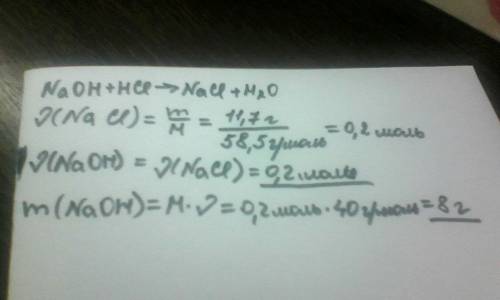 NaOH + HCl → NaCl + H₂O
ν(NaCl) = m/M = 11,7 г / 58,5 г/моль = 0,2 моль
ν(NaOH) = ν(NaCl) = 0,2 моль
m(NaOH) = M · ν = 0,2 моль · 40 г/моль = 8 г